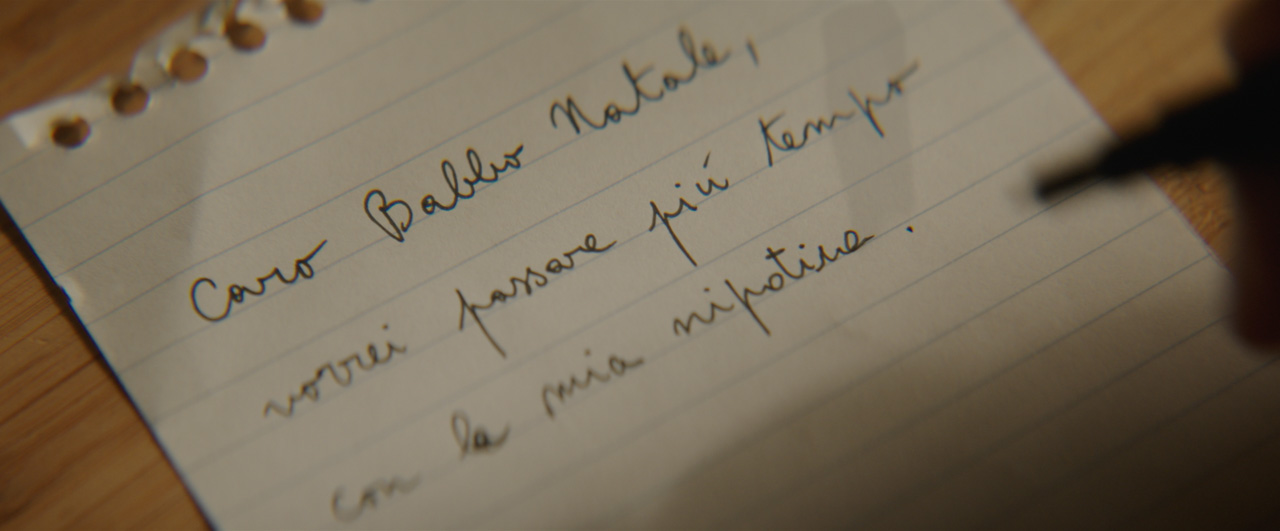 Caro Babbo Natale,
vorrei passare più tempo
con la mia nipotina.